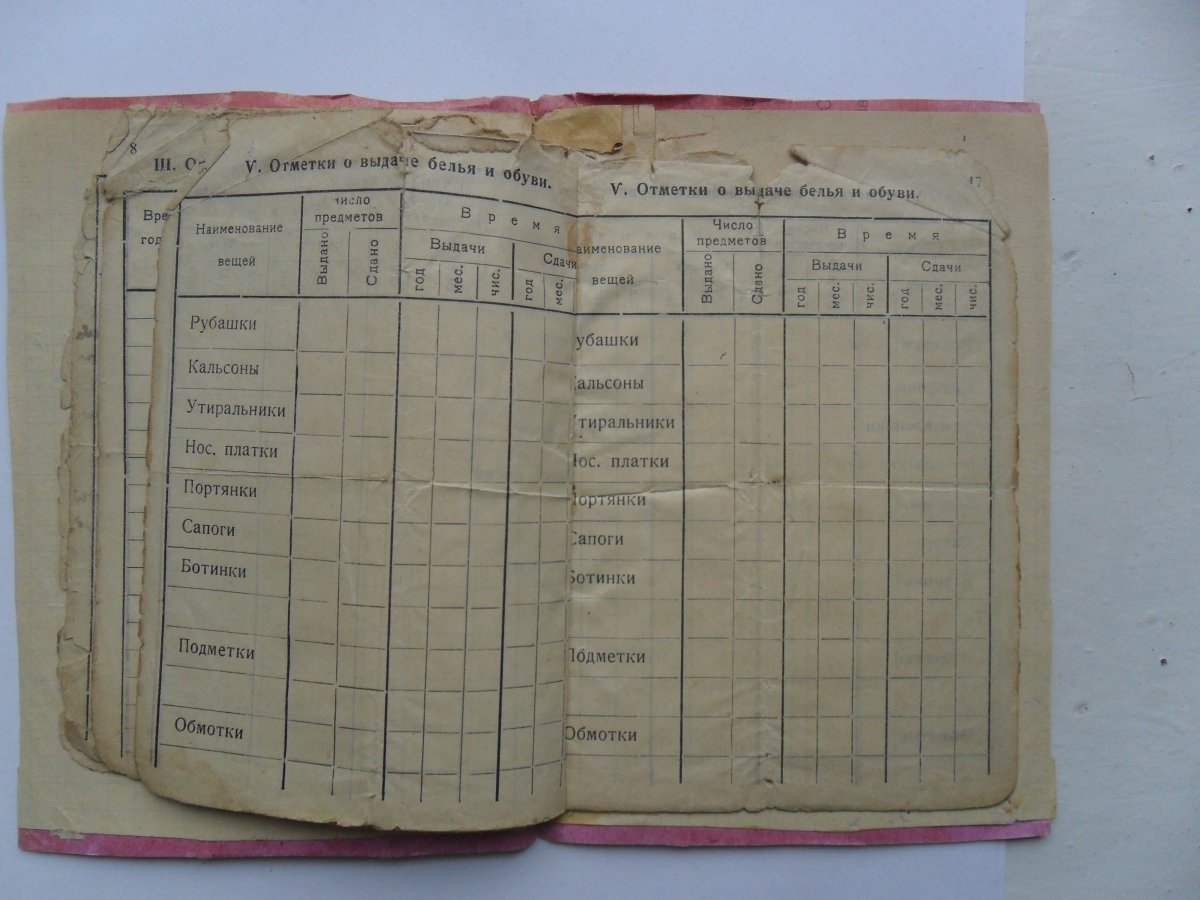 8
III.
V. Отметки о выдаче белья и обуви.
Наименование вещей
Число предметов
Выдано
Сдано
Время
Выдачи
Сдачи
год
мес.
чис.
год
мес.
Рубашки
Кальсоны
Утиральники
Нос. платки
Портянки
Сапоги
Ботинки
Подметки
Обмотки
17
V. Отметки о выдаче белья и обуви.
аименование вещей
Число предметов
Выдано
Сдано
Время
Выдачи
Сдачи
год
мес.
чис.
год
мес.
чис.
убашки
альсоны
тиральники
Нос. платки
Портянки
Сапоги
Ботинки
Подметки
Обмотки